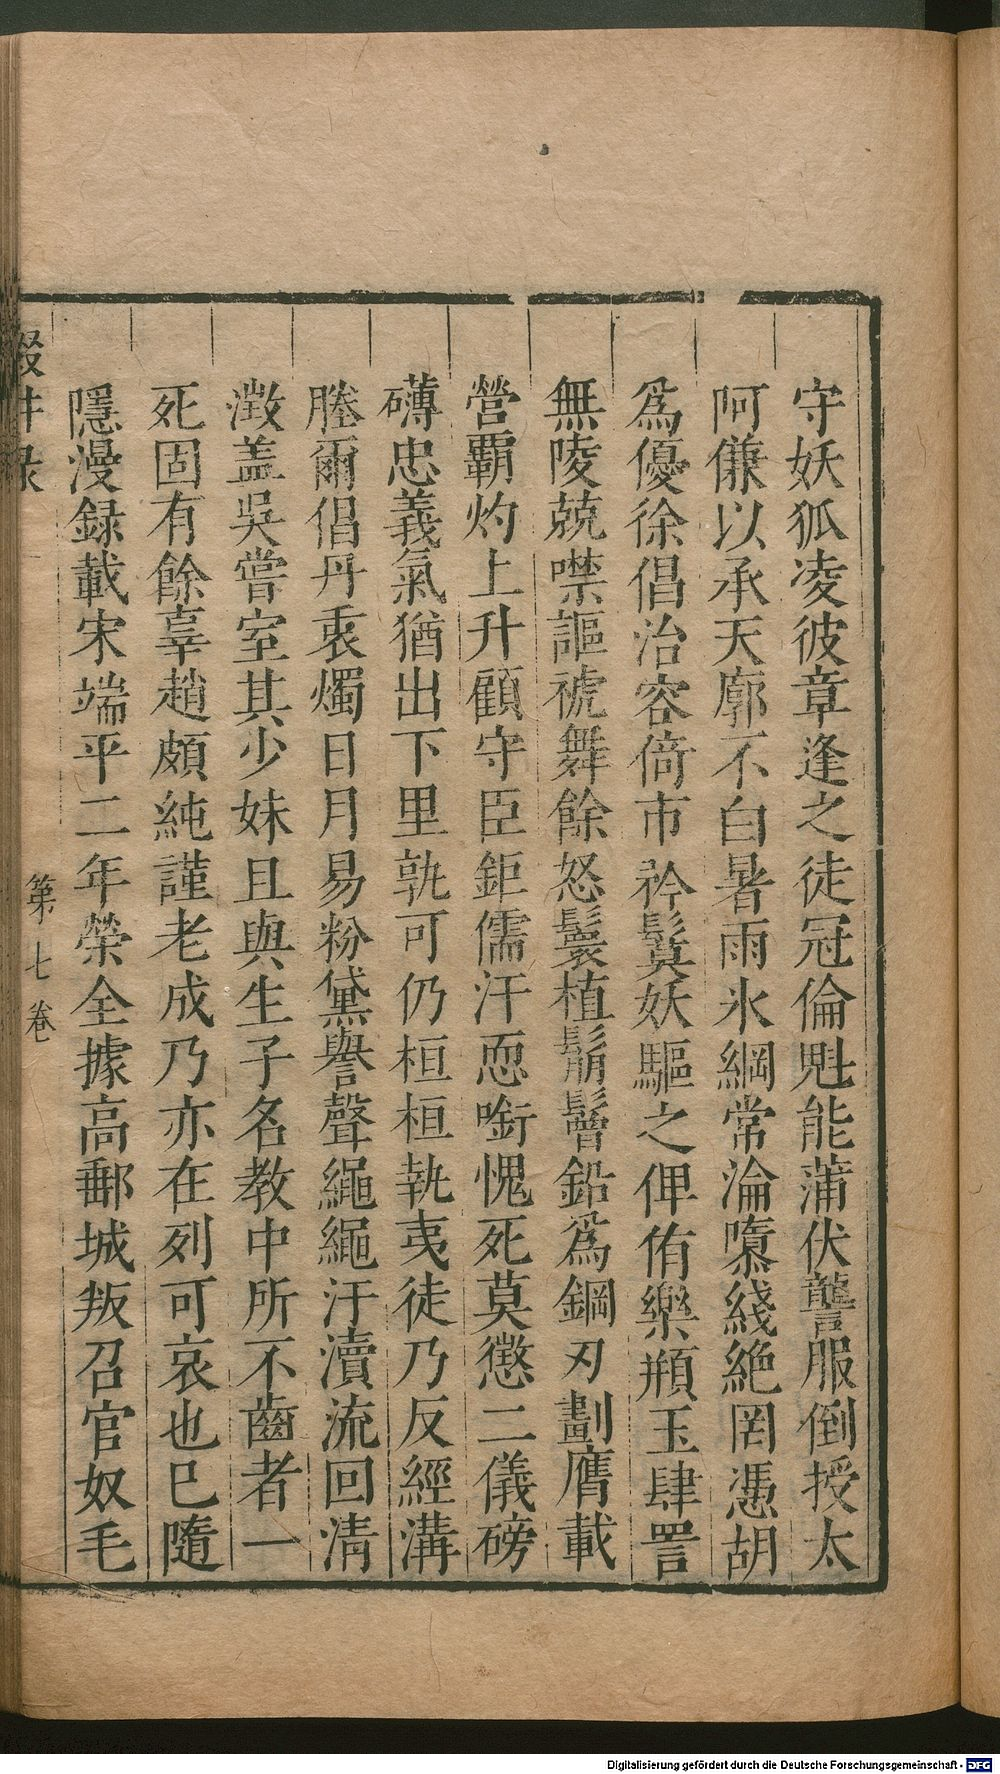 守妖狐凌彼章逢之徒冠倫魁能蒲伏讋服倒授太
阿傔以承天廓不白暑雨氷綱常淪隳綫絶罔憑胡
爲優徐倡治容倚市衿鬒妖驅之俾侑樂甁玉肆詈
無陵兢噤謳裭舞餘怒鬟植鬅鬙鉛爲鋼刃劃膺載
營覇灼上升顧守臣鉅儒汗恧㗸愧死莫懲二儀磅
礴忠義氣猶出下里孰可仍桓桓執夷徒乃反經溝
塍爾倡丹衷燭日月易粉黛譽聲繩繩汙瀆流回淸
澂盖吳嘗室其少妹且與生子名教中所不齒者一
死固有餘辜趙頗純謹老成乃亦在列可哀也巳隨
隱漫録載宋端平二年榮全據高郵城叛召官奴毛
輟畊录
第七卷
Digitalisierung gefördert durch die Deutsche Forschungsgemeinschaft - DFG